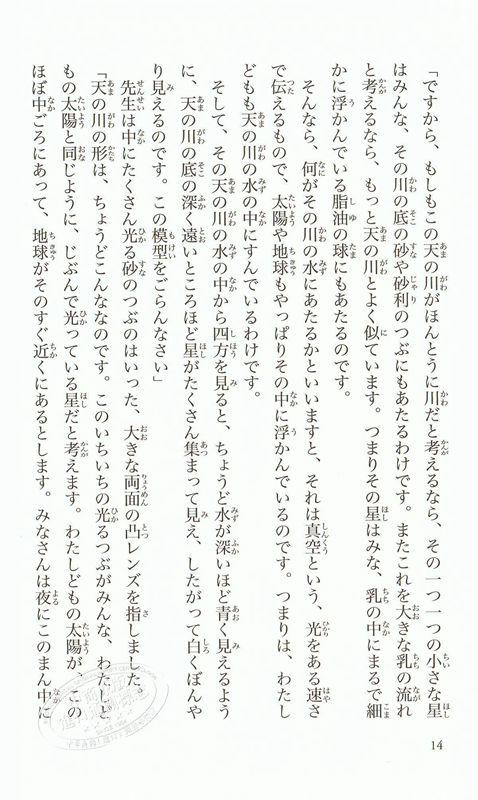 「ですから、もしもこの天の川がほんとうに川だと考えるなら、その一つ一つの小さな星
はみんな、その川の底の砂や砂利のつぶにもあたるわけです。またこれを大きな乳の流れ
と考えるなら、もっと天の川とよく似ています。つまりその星はみな、乳の中にまるで細
かに浮かんでいる脂油の球にもあたるのです。
そんなら、何がその川の水にあたるかといいますと、それは真空という、光をある速さ
で伝えるもので、太陽や地球もやっぱりその中に浮かんでいるのです。つまりは、わたし
どもも天の川の水の中にすんでいるわけです。
そして、その天の川の水の中から四方を見ると、ちょうど水が深いほど青く見えるよう
に、天の川の底の深く遠いところほど星がたくさん集まって見え、したがって白くぼんや
り見えるのです。この模型をごらんなさい」
先生は中にたくさん光る砂のつぶのはいった、大きな両面の凸レンズを指しました。
「天の川の形は、ちょうどこんななのです。このいちいちの光るつぶがみんな、わたしど
もの太陽と同じように、じぶんで光っている星だと考えます。わたしどもの太陽が、この
ほぼ中ごろにあって、地球がそのすぐ近くにあるとします。みなさんは夜にこのまん中に
14